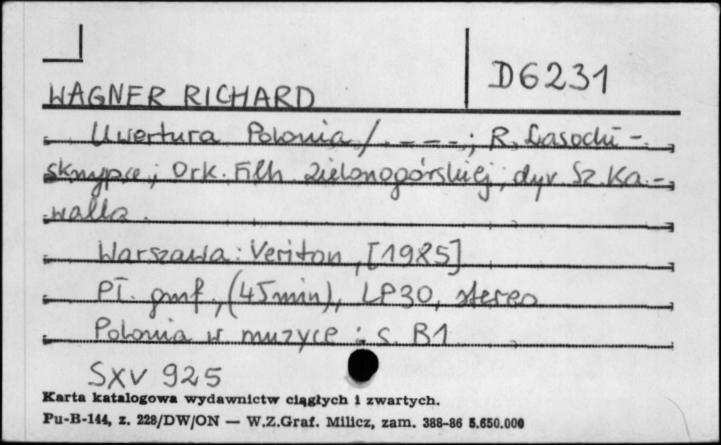 D6231
WAGNER RICHARD
Uwertura Polonia / . - - - . ; R. Lasocki -
skrzypce ; Ork. Filh Zielonogórskiej, dyr Sz. Ka -
walla .
Warszawa : Veriton , [1985]
Pł. gmf., (45 min), LP30, stereo
Polonia w muzyce ; s. B1
SXV 925
Karta katalogowa wydawnictw ciągłych i zwartych.
Pu-B-144, z. 228/DW/ON — W.Z.Graf. Milicz, zam. 388-86 5.650.000